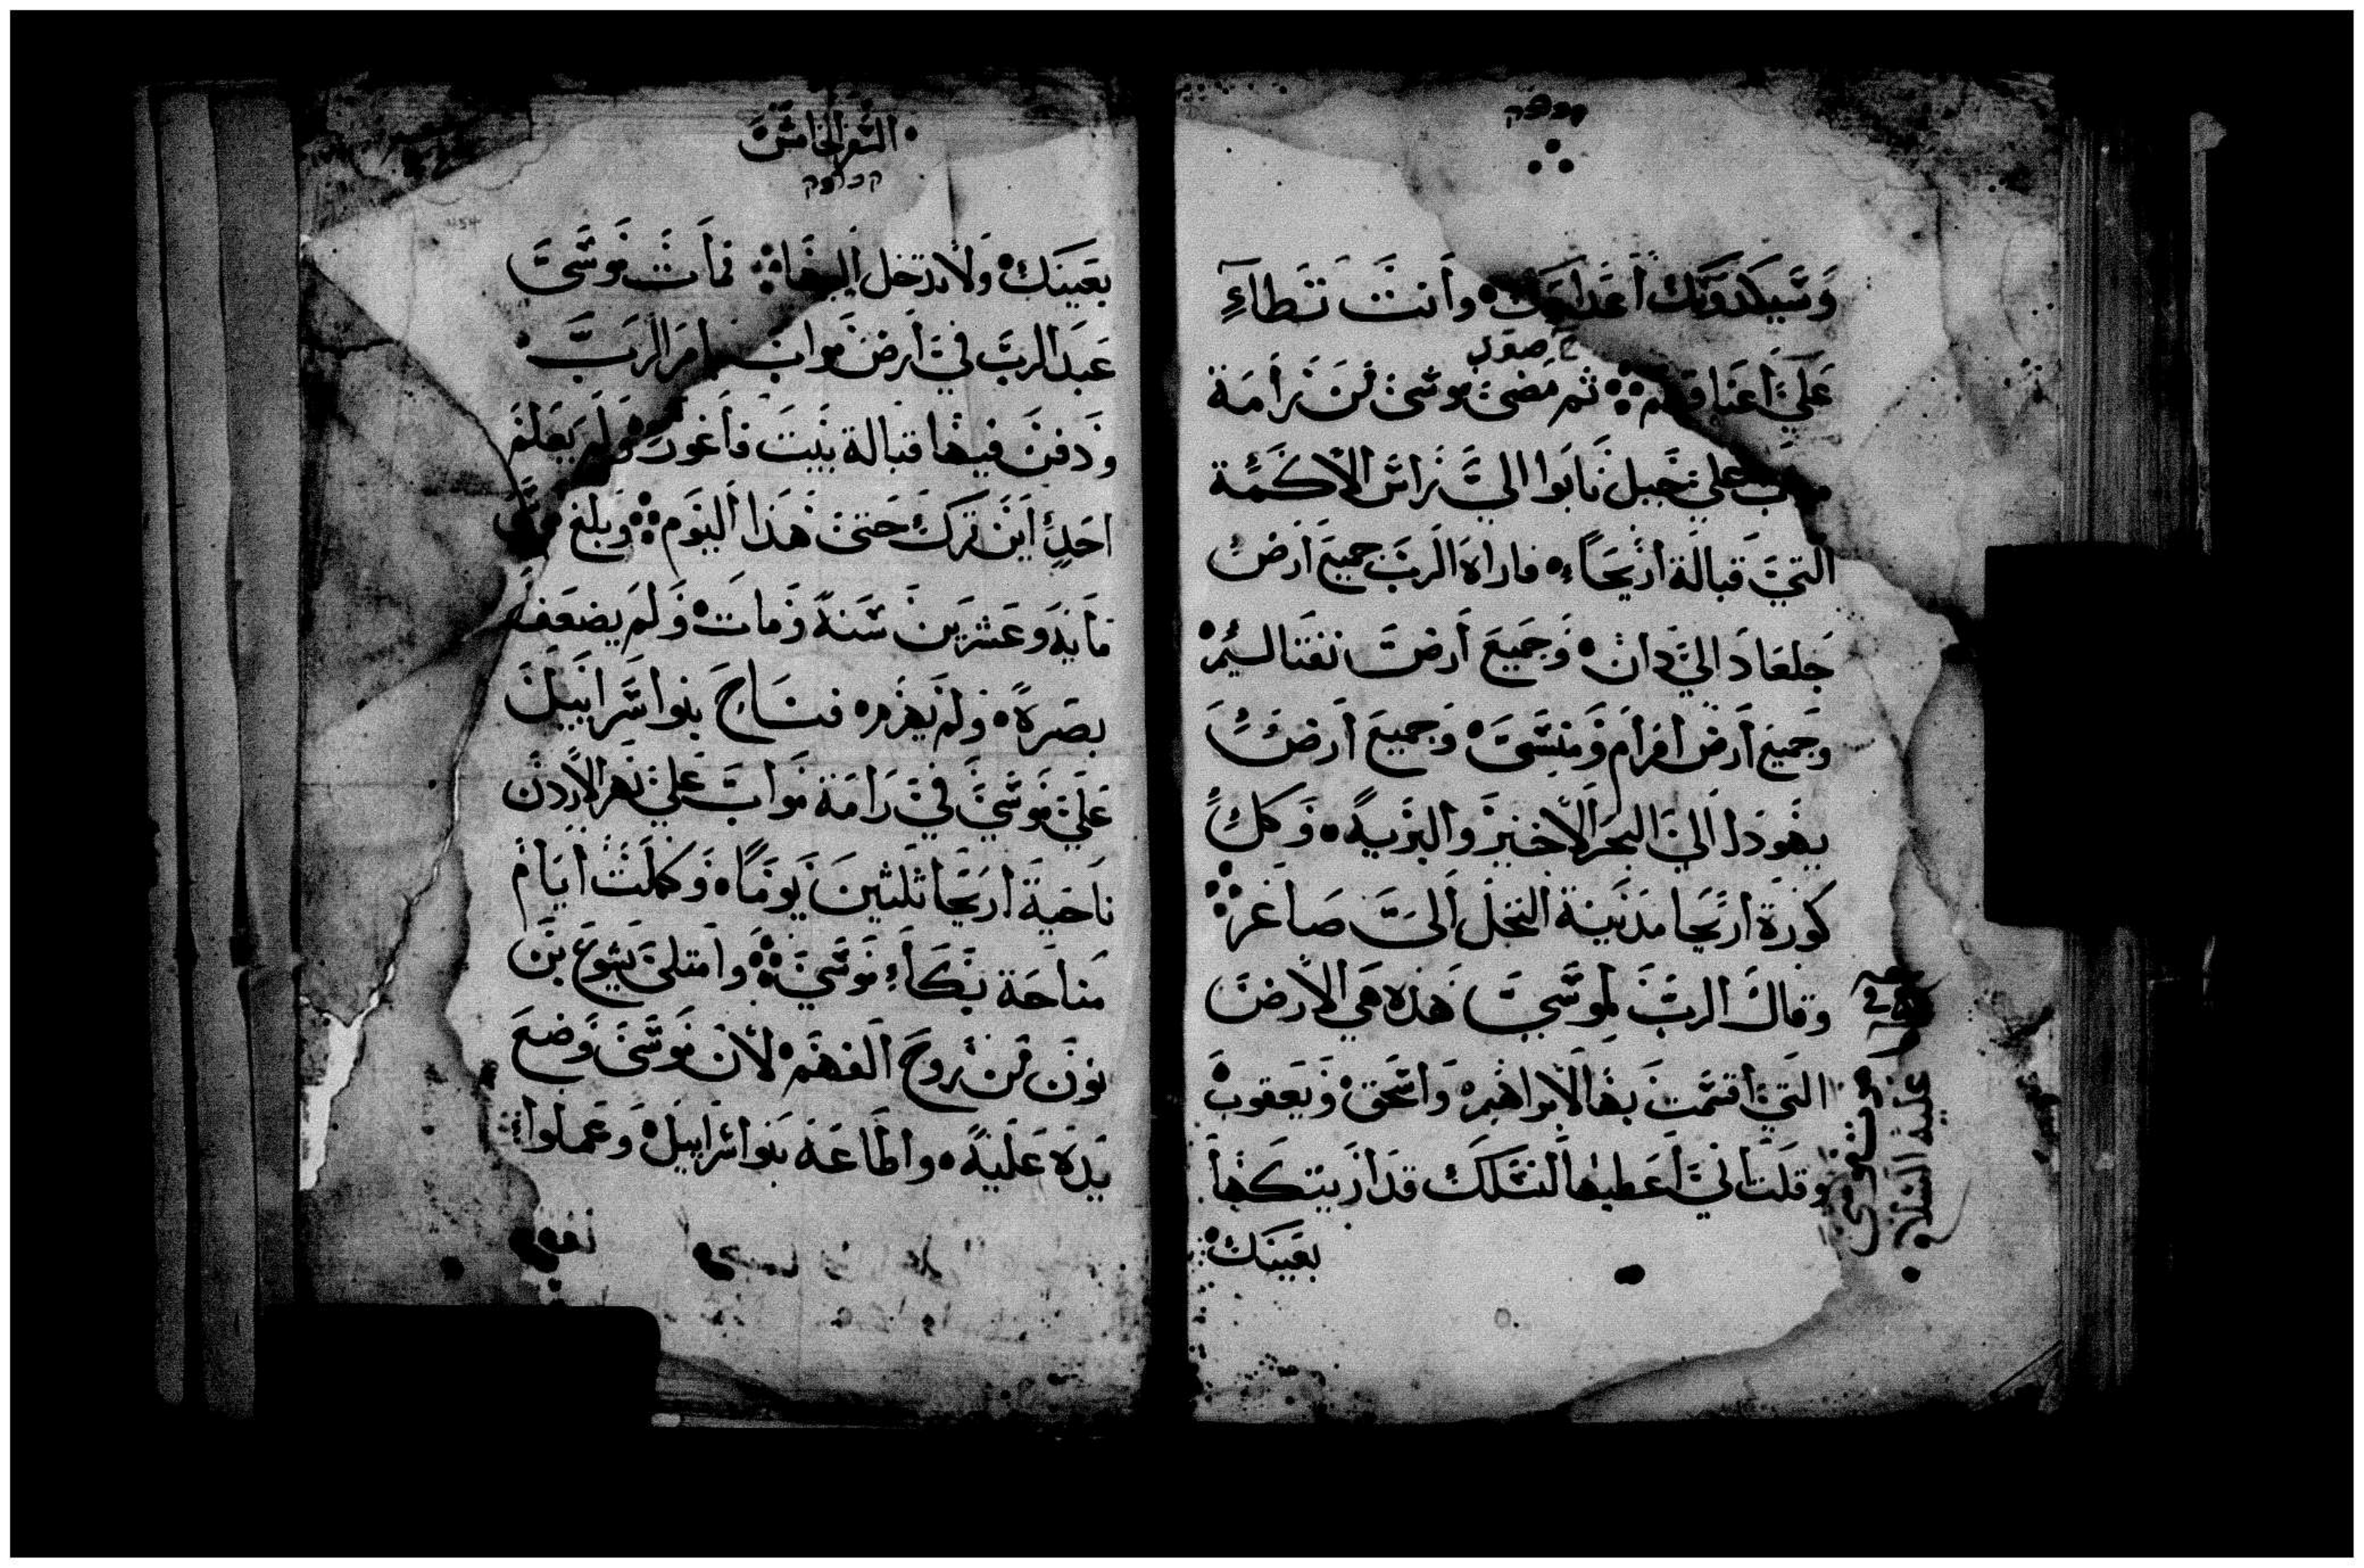 وسيكذبك أعداوك وأنت تطاء
على أعناقهم ثم مضى موسى من رامة
مواب على جبل نابوا الى راس الاكمة
التي قبالة اريحاء فاراه الرب جميع أرض
جلعاد الى دان وجميع أرض نفتاليم
وجميع أرض افرام ومنسى وجميع أرض
يهوذا الى البحر الاخير والبرية وكل
كورة اريحا مدينة النخل الى صاغر
وقال الرب لموسى هذه هي الارض
التي اقسمت بها لابراهيم واسحق ويعقوب
وقلت اني أعطيها لنسلك قد أريتكها
بعينك
موسى
عليه السلام
السفر الخامس
بعينك ولا تدخل اليها فمات موسى
عبد الرب في أرض مواب بامر الرب
ودفن فيها قبالة بيت فاغور ولم يعلم
احد أين ترك حتى هذا اليوم وبلغ موسى
مايه وعشرين سنة ومات ولم يضعف
بصره ولم يهرم فناح بنوا سرابيل
على موسى في رامة مواب على نهر الاردن
ناحية اريحا ثلثين يوما وكملت أيام
مناحة بكاء موسى وامتلى يشوع بن
نون من روح الفهم لأن موسى وضع
يده عليه واطاعه بنوا سرابيل وعملوا